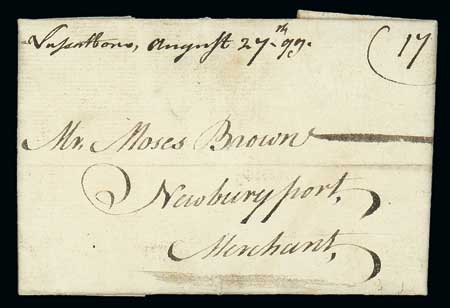 Vassalboro, August 27th 99. 17
Mr. Moses Brown
Newburyport,
Merchant,